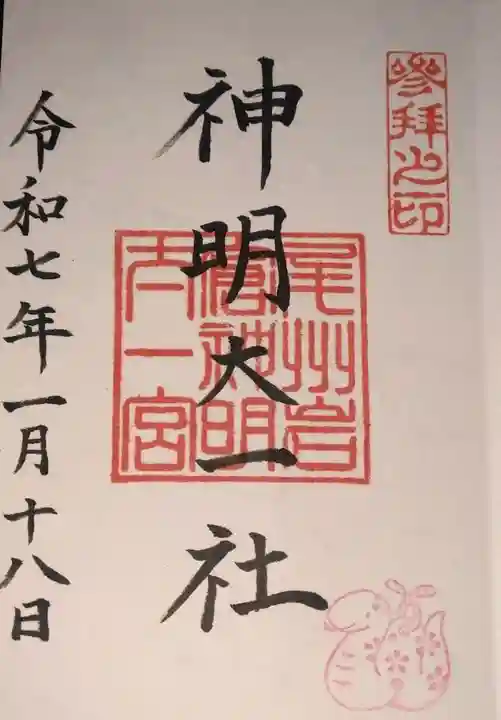 參拜之印
神明大一社
尾州岩
倉神明
大一宮
令和七年一月十八日